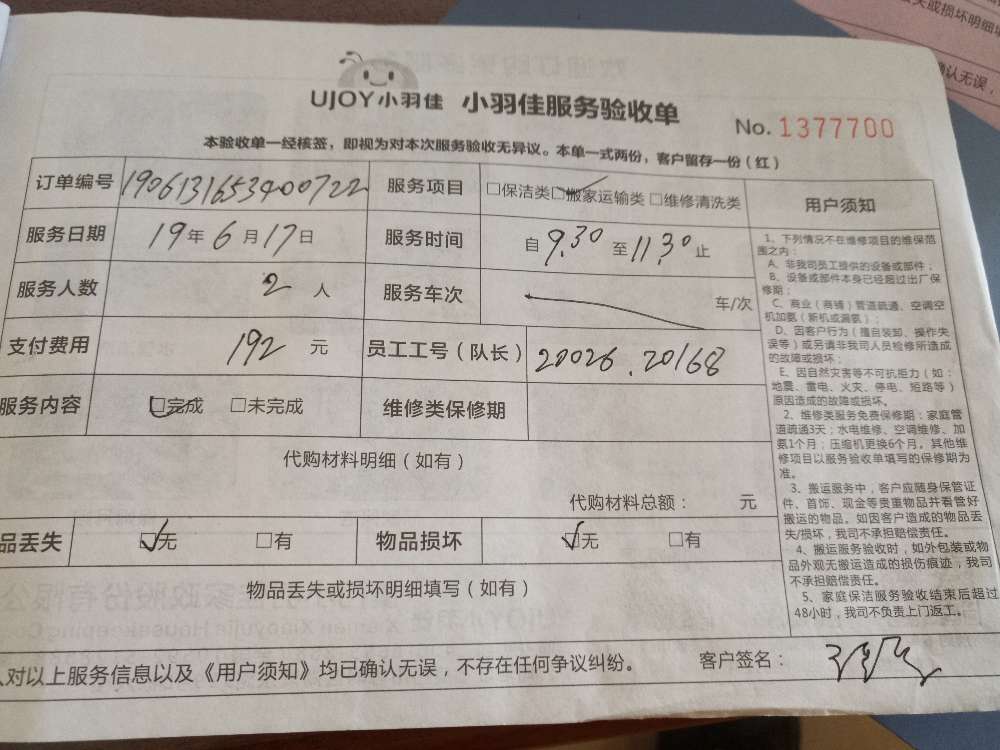 UJOY小羽佳 小羽佳服务验收单
No. 1377700
本验收单一经核签，即视为对本次服务验收无异议。本单一式两份，客户留存一份（红）
订单编号 1906131653400722 服务项目 □保洁类□搬家运输类 □维修清洗类
服务日期 19年6月17日 服务时间 自9.30至11.30止
服务人数 2人 服务车次 车/次
支付费用 192元 员工工号（队长） 20026.20168
服务内容 □完成 □未完成 维修类保修期
代购材料明细（如有）
代购材料总额： 元
品丢失 □无 □有 物品损坏 □无 □有
物品丢失或损坏明细填写（如有）
对以上服务信息以及《用户须知》均已确认无误，不存在任何争议纠纷。 客户签名：
用户须知
1、下列情况不在维修项目的维保范
围之内：
A、非我司员工提供的设备或部件；
B、设备或部件本身已经超过出厂保
修期；
C、商业（商铺）管道疏通、空调空
机加氨（新机或漏氨）；
D、因客户行为（擅自装卸、操作失
误等）或另请非我司人员检修所造成
的故障或损坏；
E、因自然灾害等不可抗拒力（如：
地震、雷电、火灾、停电、短路等）
原因造成的故障或损坏。
2、维修类服务免费保修期：家庭管
道疏通3天；水电维修、空调维修、加
氨1个月；压缩机更换6个月。其他维
修项目以服务验收单填写的保修期为
准。
3、搬运服务中，客户应随身保管证
件、首饰、现金等贵重物品并看管好
搬运的物品。如因客户造成的物品丢
失/损坏，我司不承担赔偿责任。
4、搬运服务验收时，如外包装或物
品外观无搬运造成的损伤痕迹，我司
不承担赔偿责任。
5、家庭保洁服务验收结束后超过
48小时，我司不负责上门返工。
失或损坏明细填
确认无误，